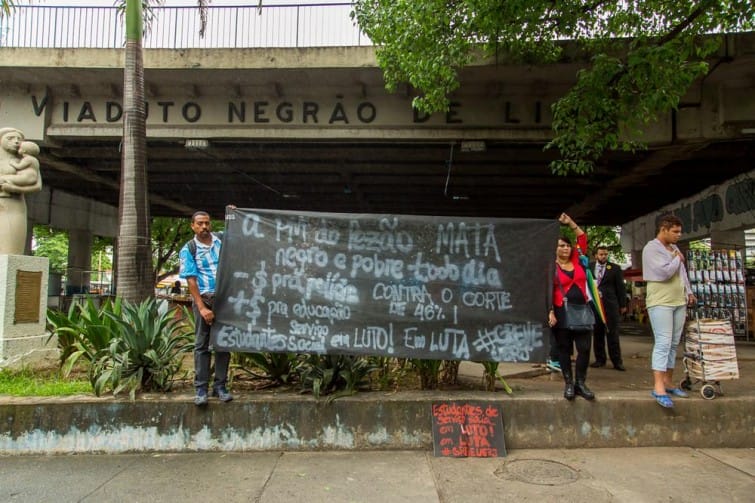 VIADUTO NEGRÃO DE LI
A PM do Pezão MATA
negro e pobre todo dia
- $ prá
CONTRA O CORTE
+ $ pra educação
DE 46% !
Estudantes Serviço Social em LUTO! Em LUTA
Estudantes de
Serviço social
em LUTO!
em LUTA